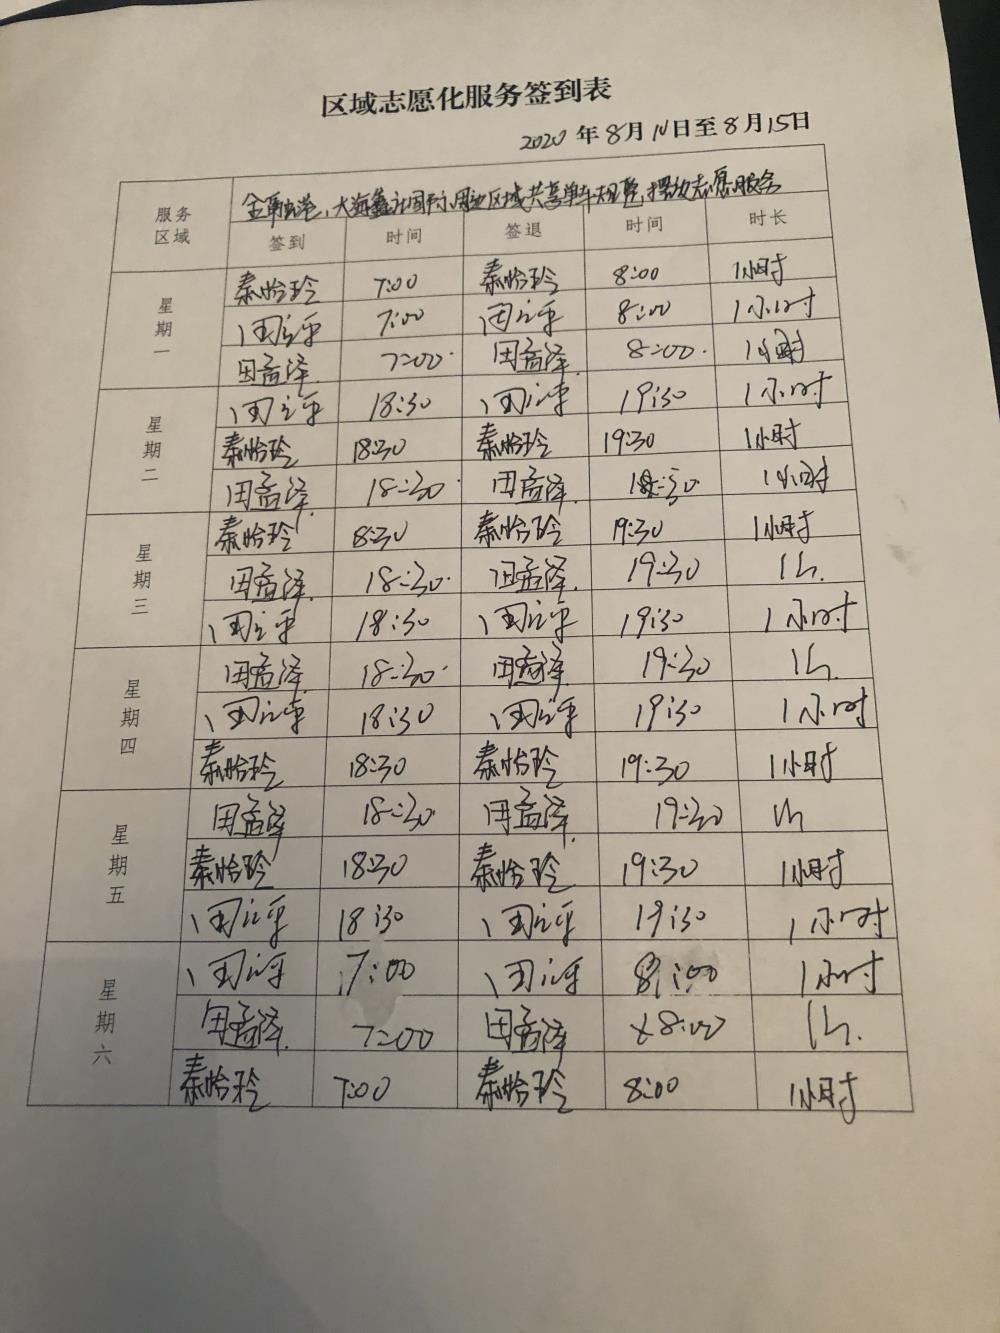 区域志愿化服务签到表
2020 年 8 月 10 日至 8 月 15 日
服务区域 大海鑫 周边区域共享单车规整,摆放志愿服务
签到 时间 签退 时间 时长
星期一
秦怡玲 7:00 秦怡玲 8:00 1小时
田立平 7:00 田立平 8:00 1小时
田孟泽 7:00 田孟泽 8:00 1小时
星期二
田立平 18:30 田立平 19:30 1小时
秦怡玲 18:30 秦怡玲 19:30 1小时
田孟泽 18:30 田孟泽 18:30 1小时
星期三
秦怡玲 8:30 秦怡玲 19:30 1小时
田孟泽 18:30 田孟泽 19:30 1h.
田立平 18:30 田立平 19:30 1小时
星期四
田孟泽 18:30 田孟泽 19:30 1h.
田立平 18:30 田立平 19:30 1小时
秦怡玲 18:30 秦怡玲 19:30 1小时
星期五
田孟泽 18:30 田孟泽 19:30 1h
秦怡玲 18:30 秦怡玲 19:30 1小时
田立平 18:30 田立平 19:30 1小时
星期六
田立平 7:00 田立平 8:00 1小时
田孟泽 7:00 田孟泽 8:00 1h.
秦怡玲 7:00 秦怡玲 8:00 1小时